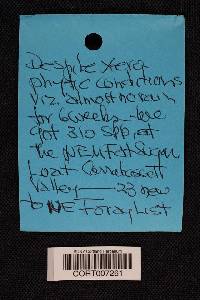 Despite xero
phytic conditions
viz. almost no rain
for 6 weeks - we
got 310 spp. at
the NEMF at Sugar
Loaf Carrabassett
Valley — 33 new
to NE Foray List
COFT007261